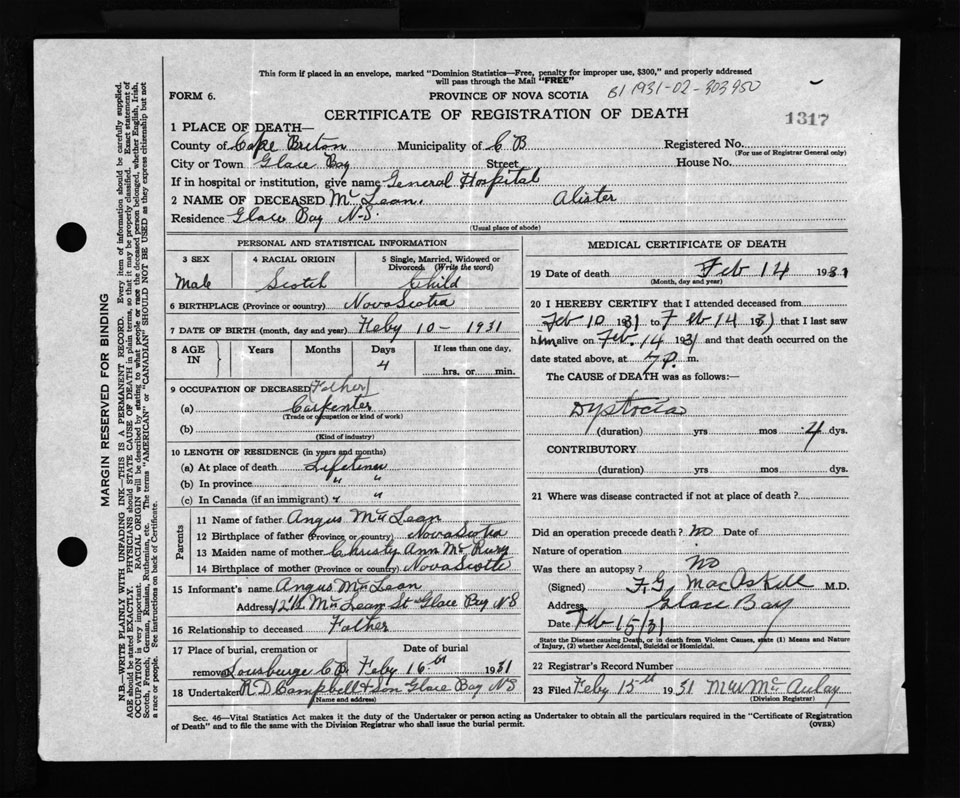 This form if placed in an envelope, marked "Dominion Statistics—Free, penalty for improper use, $300," and properly addressed
will pass through the Mail "FREE"
FORM 6.
PROVINCE OF NOVA SCOTIA
B1 1931-02-303950
CERTIFICATE OF REGISTRATION OF DEATH
1317
1 PLACE OF DEATH—
County of Cape Breton Municipality of C B Registered No.
(For use of Registrar General only)
City or Town Glace Bay Street House No.
If in hospital or institution, give name General Hospital
2 NAME OF DECEASED Mc Lean, Alister
Residence Glace Bay N.S.
(Usual place of abode)
PERSONAL AND STATISTICAL INFORMATION
3 SEX 4 RACIAL ORIGIN 5 Single, Married, Widowed or Divorced (Write the word)
Male Scotch Child
6 BIRTHPLACE (Province or country) Nova Scotia
7 DATE OF BIRTH (month, day and year) Feby 10 - 1931
8 AGE IN Years Months Days If less than one day,
4 hrs. or min.
9 OCCUPATION OF DECEASED Father
(a) Carpenter
(Trade or occupation or kind of work)
(b)
(Kind of industry)
10 LENGTH OF RESIDENCE (in years and months)
(a) At place of death Lifetime
(b) In province " "
(c) In Canada (if an immigrant) " "
Parents
11 Name of father Angus Mc Lean
12 Birthplace of father (Province or country) Nova Scotia
13 Maiden name of mother Christy Ann Mc Rury
14 Birthplace of mother (Province or country) Nova Scotia
15 Informant's name Angus Mc Lean
Address Mc Lean St Glace Bay N S
16 Relationship to deceased Father
17 Place of burial, cremation or removal Date of burial
Lousburge C B Feby 16th 1931
18 Undertaker R. D. Campbell & Son Glace Bay N S
(Name and address)
MEDICAL CERTIFICATE OF DEATH
19 Date of death Feb 14 1931
(Month, day and year)
20 I HEREBY CERTIFY that I attended deceased from
Feb 10 1931 to Feb 14 1931 that I last saw
him alive on Feb. 14 1931 and that death occurred on the
date stated above, at 7 p. m.
The CAUSE of DEATH was as follows:
Dystocia
(duration) yrs mos 4 dys.
CONTRIBUTORY
(duration) yrs mos dys.
21 Where was disease contracted if not at place of death?
Did an operation precede death? No Date of
Nature of operation
Was there an autopsy? No
(Signed) F. G. MacAskill M.D.
Address Glace Bay
Date Feb 15/31
State the Disease causing Death, or in death from Violent Causes, state (1) Means and Nature
of Injury, (2) whether Accidental, Suicidal or Homicidal.
22 Registrar's Record Number
23 Filed Feby 15th 1931 M W Mc Aulay
(Division Registrar)
Sec. 46—Vital Statistics Act makes it the duty of the Undertaker or person acting as Undertaker to obtain all the particulars required in the "Certificate of Registration
of Death" and to file the same with the Division Registrar who shall issue the burial permit.
(OVER)
MARGIN RESERVED FOR BINDING
N.B.—WRITE PLAINLY WITH UNFADING INK—THIS IS A PERMANENT RECORD. Every item of information should be carefully supplied.
AGE should be stated EXACTLY. PHYSICIANS should STATE CAUSE OF DEATH in plain terms, so that it may be properly classified. Exact statement of
OCCUPATION is very important. RACIAL ORIGIN will be described by stating to what people or race the deceased person belonged, whether English, Irish,
Scotch, French, German, Russian, Ruthenian, etc. The terms "AMERICAN" or "CANADIAN" SHOULD NOT BE USED as they express citizenship but not
a race or people. See instructions on back of Certificate.